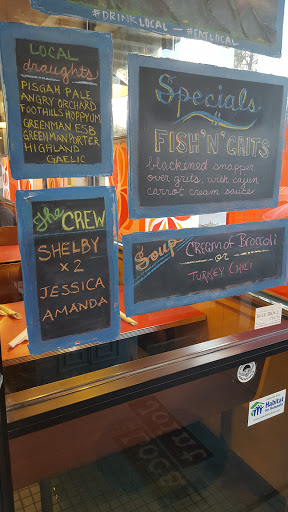 #DRINKLOCAL — #EATLOCAL
LOCAL
draughts
PISGAH PALE
ANGRY ORCHARD
FOOTHILLS HOPPYUM
GREENMAN ESB
GREENMAN PORTER
HIGHLAND
GAELIC
Specials
FISH 'N' GRITS
blackened snapper
over grits with cajun
carrot cream sauce
The CREW
SHELBY
x 2
JESSICA
AMANDA
Soup
CREAM of BROCCOLI
or
TURKEY CHILI
Habitat